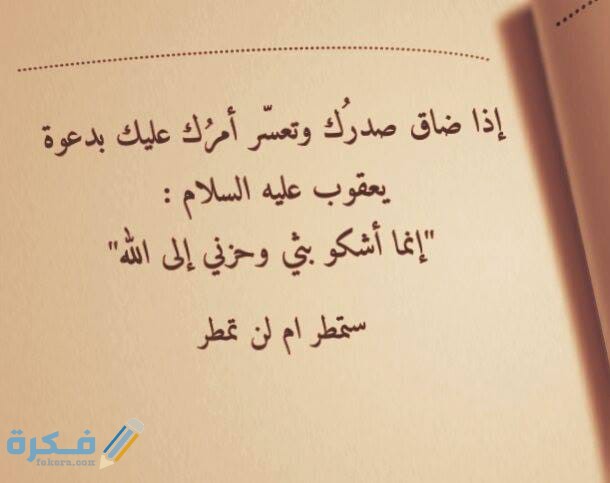 إذا ضاق صدرُك وتعسّر أمرُك عليك بدعوة
يعقوب عليه السلام :
"إنما أشكو بثي وحزني إلى الله"
ستمطر ام لن تمطر
فكرة
fekera.com